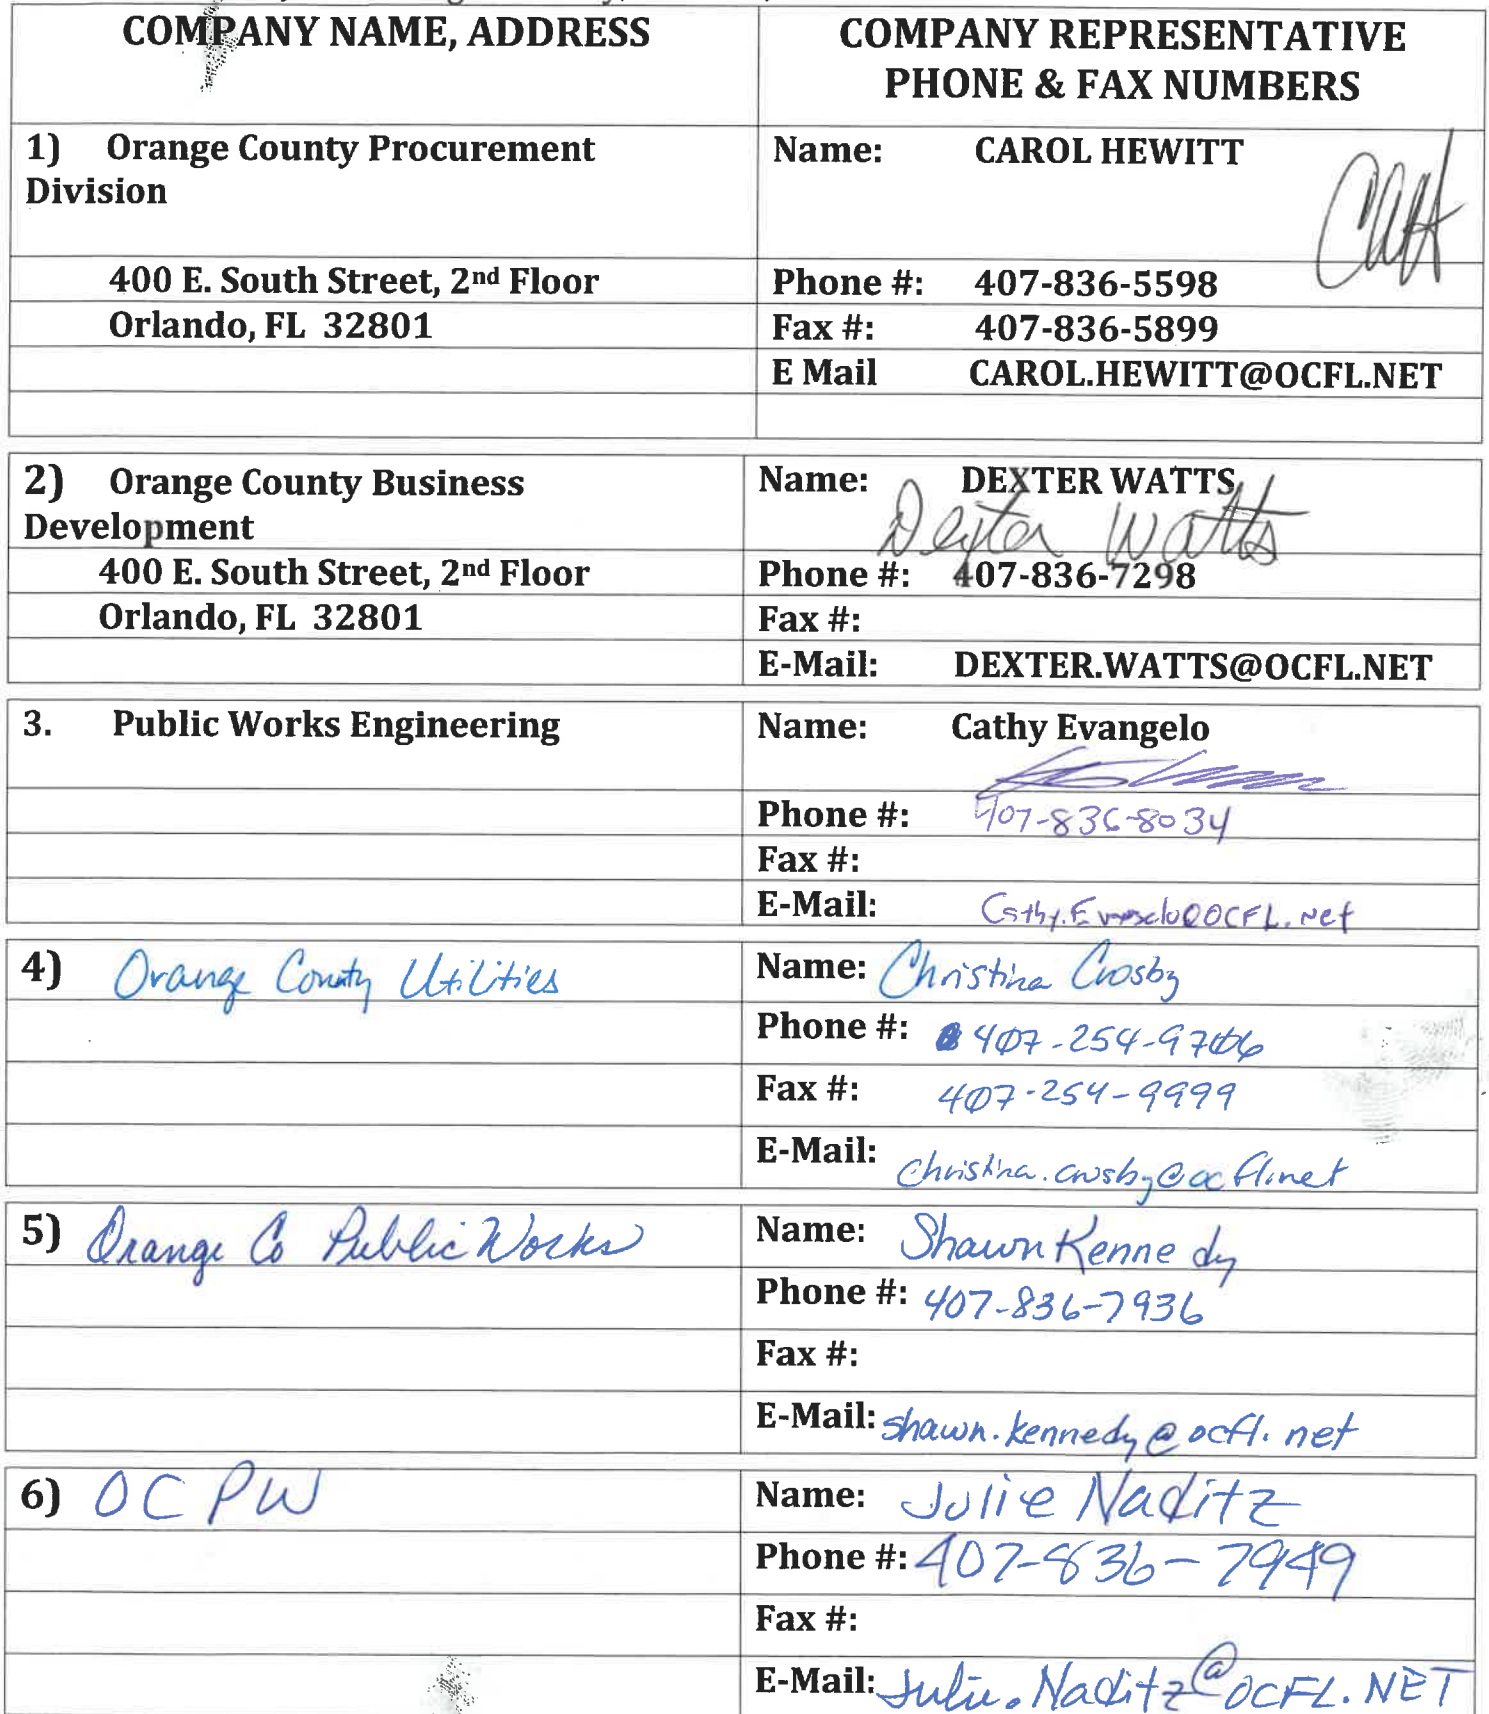 COMPANY NAME, ADDRESS
COMPANY REPRESENTATIVE
PHONE & FAX NUMBERS
1) Orange County Procurement
Division
Name: CAROL HEWITT
400 E. South Street, 2nd Floor
Phone #: 407-836-5598
Orlando, FL 32801
Fax #: 407-836-5899
E Mail CAROL.HEWITT@OCFL.NET
2) Orange County Business
Development
Name: DEXTER WATTS
Dexter Watts
400 E. South Street, 2nd Floor
Phone #: 407-836-7298
Orlando, FL 32801
Fax #:
E-Mail: DEXTER.WATTS@OCFL.NET
3. Public Works Engineering
Name: Cathy Evangelo
Phone #: 407-836-8034
Fax #:
E-Mail: Cathy.Evangelo@OCFL.net
4) Orange County Utilities
Name: Christina Crosby
Phone #: 407-254-9706
Fax #: 407-254-9999
E-Mail: christina.crosby@ocfl.net
5) Orange Co Public Works
Name: Shawn Kennedy
Phone #: 407-836-7936
Fax #:
E-Mail: shawn.kennedy@ocfl.net
6) OCPW
Name: Julie Naditz
Phone #: 407-836-7949
Fax #:
E-Mail: Julie.Naditz@OCFL.NET